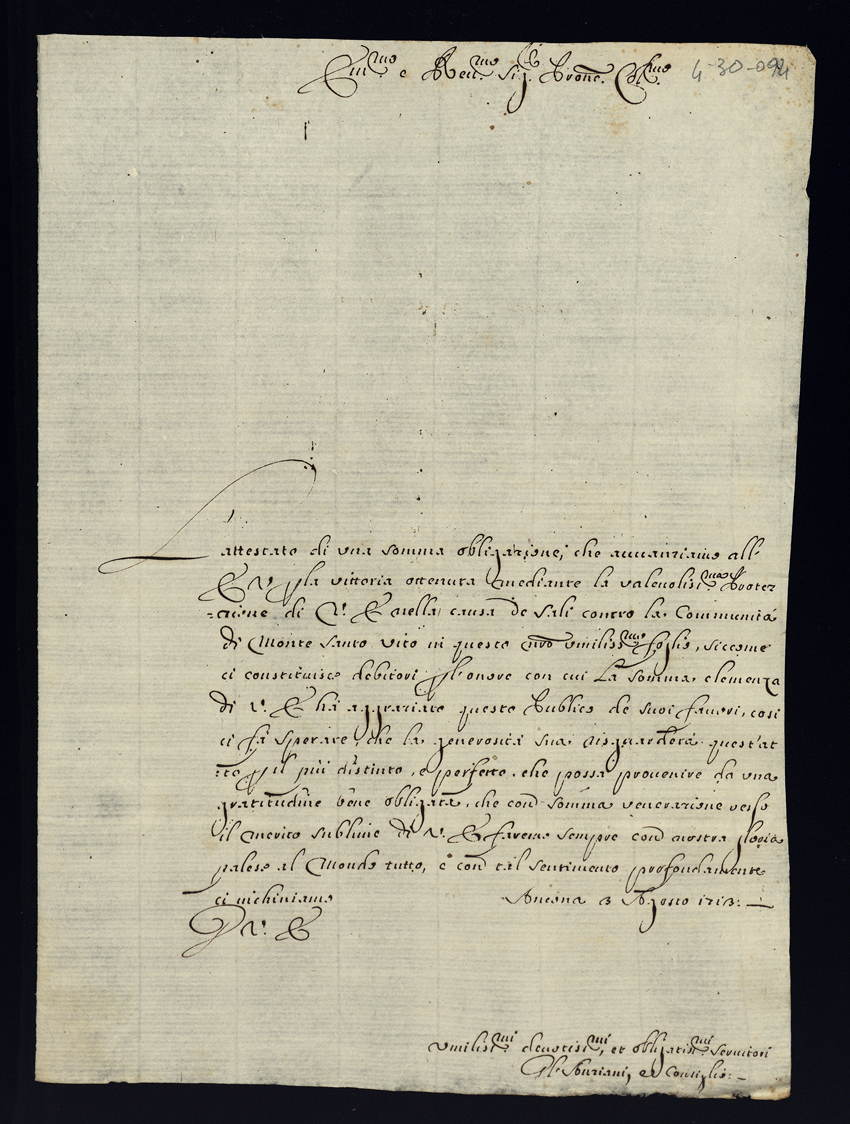 Em.mo e Reu.mo Sig.r Prone. Col.mo
4-30-094
L'attestato di una somma obligazione, che auuanziamo all'
E V. p la vittoria ottenuta mediante la valeuolis.ma Protez
=zione di V. E nella causa de Sali contro la Communità
di Monte Santo Vito in questo nro vmiliss.mo foglio, siccome
ci constituisce debitori p l'onore con cui La somma clemenza
di V. E hà aggraziato questo Publico de suoi fauori, così
ci fà sperare, che la generosità sua risguarderà quest'at
=to p il più distinto, e perfetto, che possa prouenire da una
gratitudine bene obligata, che con somma venerazione verso
il merito sublime di V. E faremo sempre con nostra gloria
palese al Mondo tutto, e con tal sentimento profondamente
ci inchiniamo Ancona 3 Agosto 1713:
D V. E
vmilis.mi deuotis.mi, et obligatis.mi Seruitori
Gl'Anziani, et Consiglio: